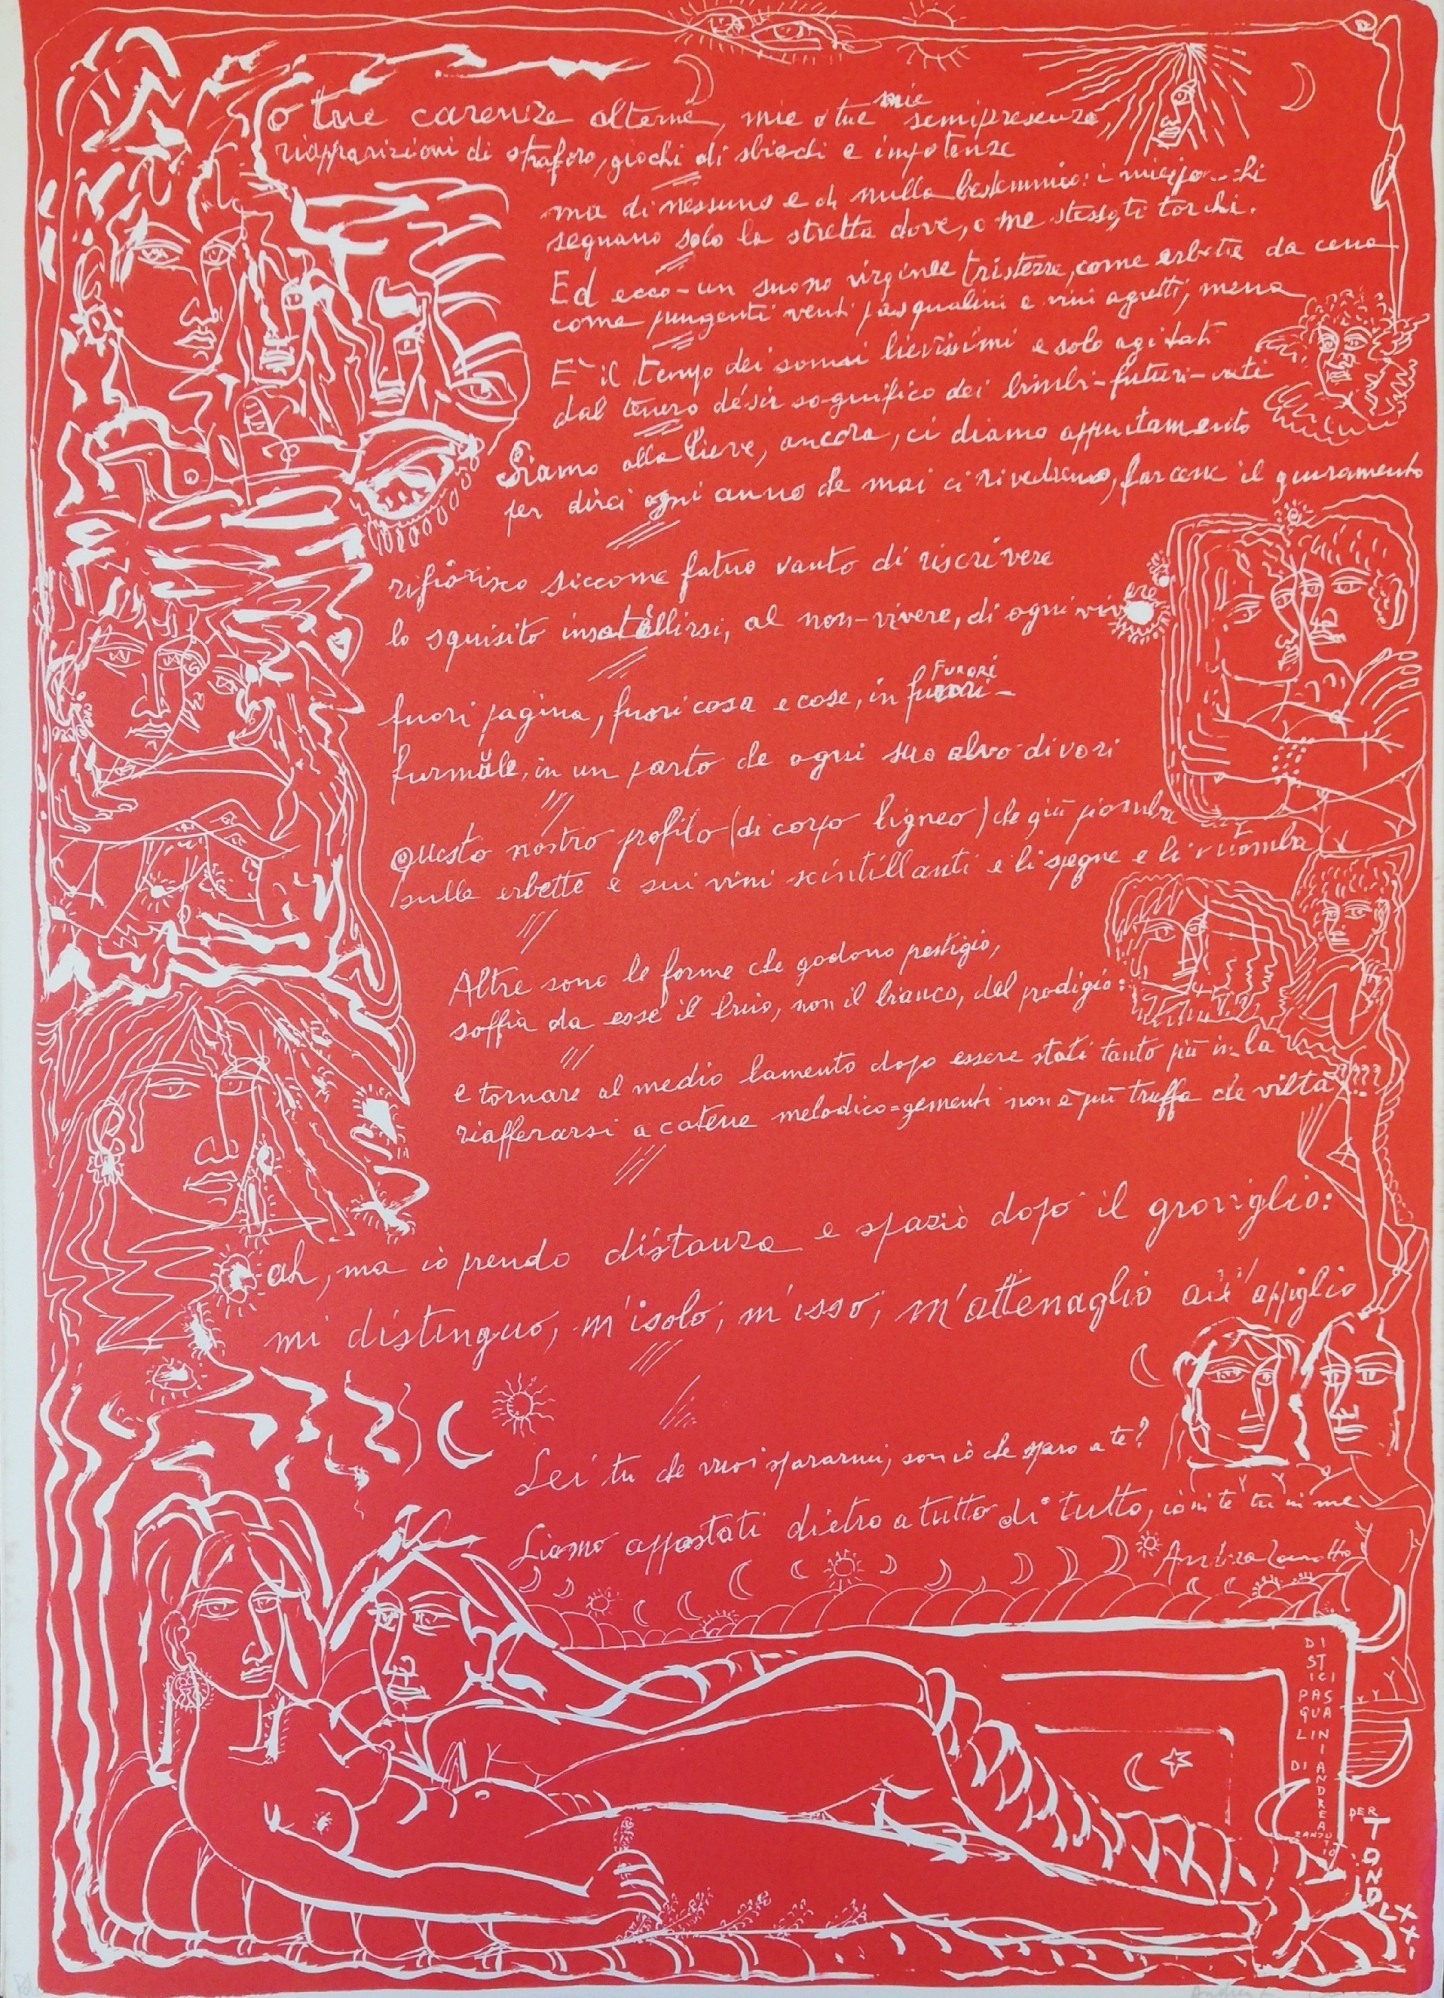 o tue carenze alterne, mie o tue mie semipresenze,
riapparizioni di straforo, giochi di sbiechi e impotenze
ma di nessuno e di nulla bestemmio: i miei
segnano solo la stretta dove, o me stesso, ti torchi.
Ed ecco - un suono virginee tristezze, come erbette da cena
come pungenti venti pasqualini e vini agretti, mena
E' il tempo dei sonni lievissimi e solo agitati
dal tenero désir sognifico dei bimbi-futuri-vati
Siamo alla Pieve, ancora, ci diamo appuntamento
per dirci ogni anno che mai ci rivedremo, farcene il giuramento
rifiorisco siccome fatuo vanto di riscrivere
lo squisito insatellirsi, al non-vivere, di ogni
fuori pagina, fuori cosa e cose, in fuori- FURORI
furmäle, in un parto che ogni suo alvo divori
Questo nostro profilo (di corpo ligneo) che giù piomba
sulle erbette e sui vini scintillanti e li spegne e li
Altre sono le forme che godono prestigio,
soffia da esse il bruo, non il bianco, del prodigio:
e tornare al medio lamento dopo essere stati tanto più in-la
riafferrarsi a catene melodico=gementi non è più truffa che viltà
ah, ma iò prendo distanza e spazio dopo il groviglio:
mi distinguo, m'isolo, m'isso, m'attenaglio all'appiglio
Sei tu che vuoi spararmi, son iò che sparo a te?
Siamo appostati dietro a tutto di tutto, iò in te tu in me
Andrea Zanzotto
DISTICI
PASQUALINI
DI ANDREA
ZANZOTTO
PER
TONO